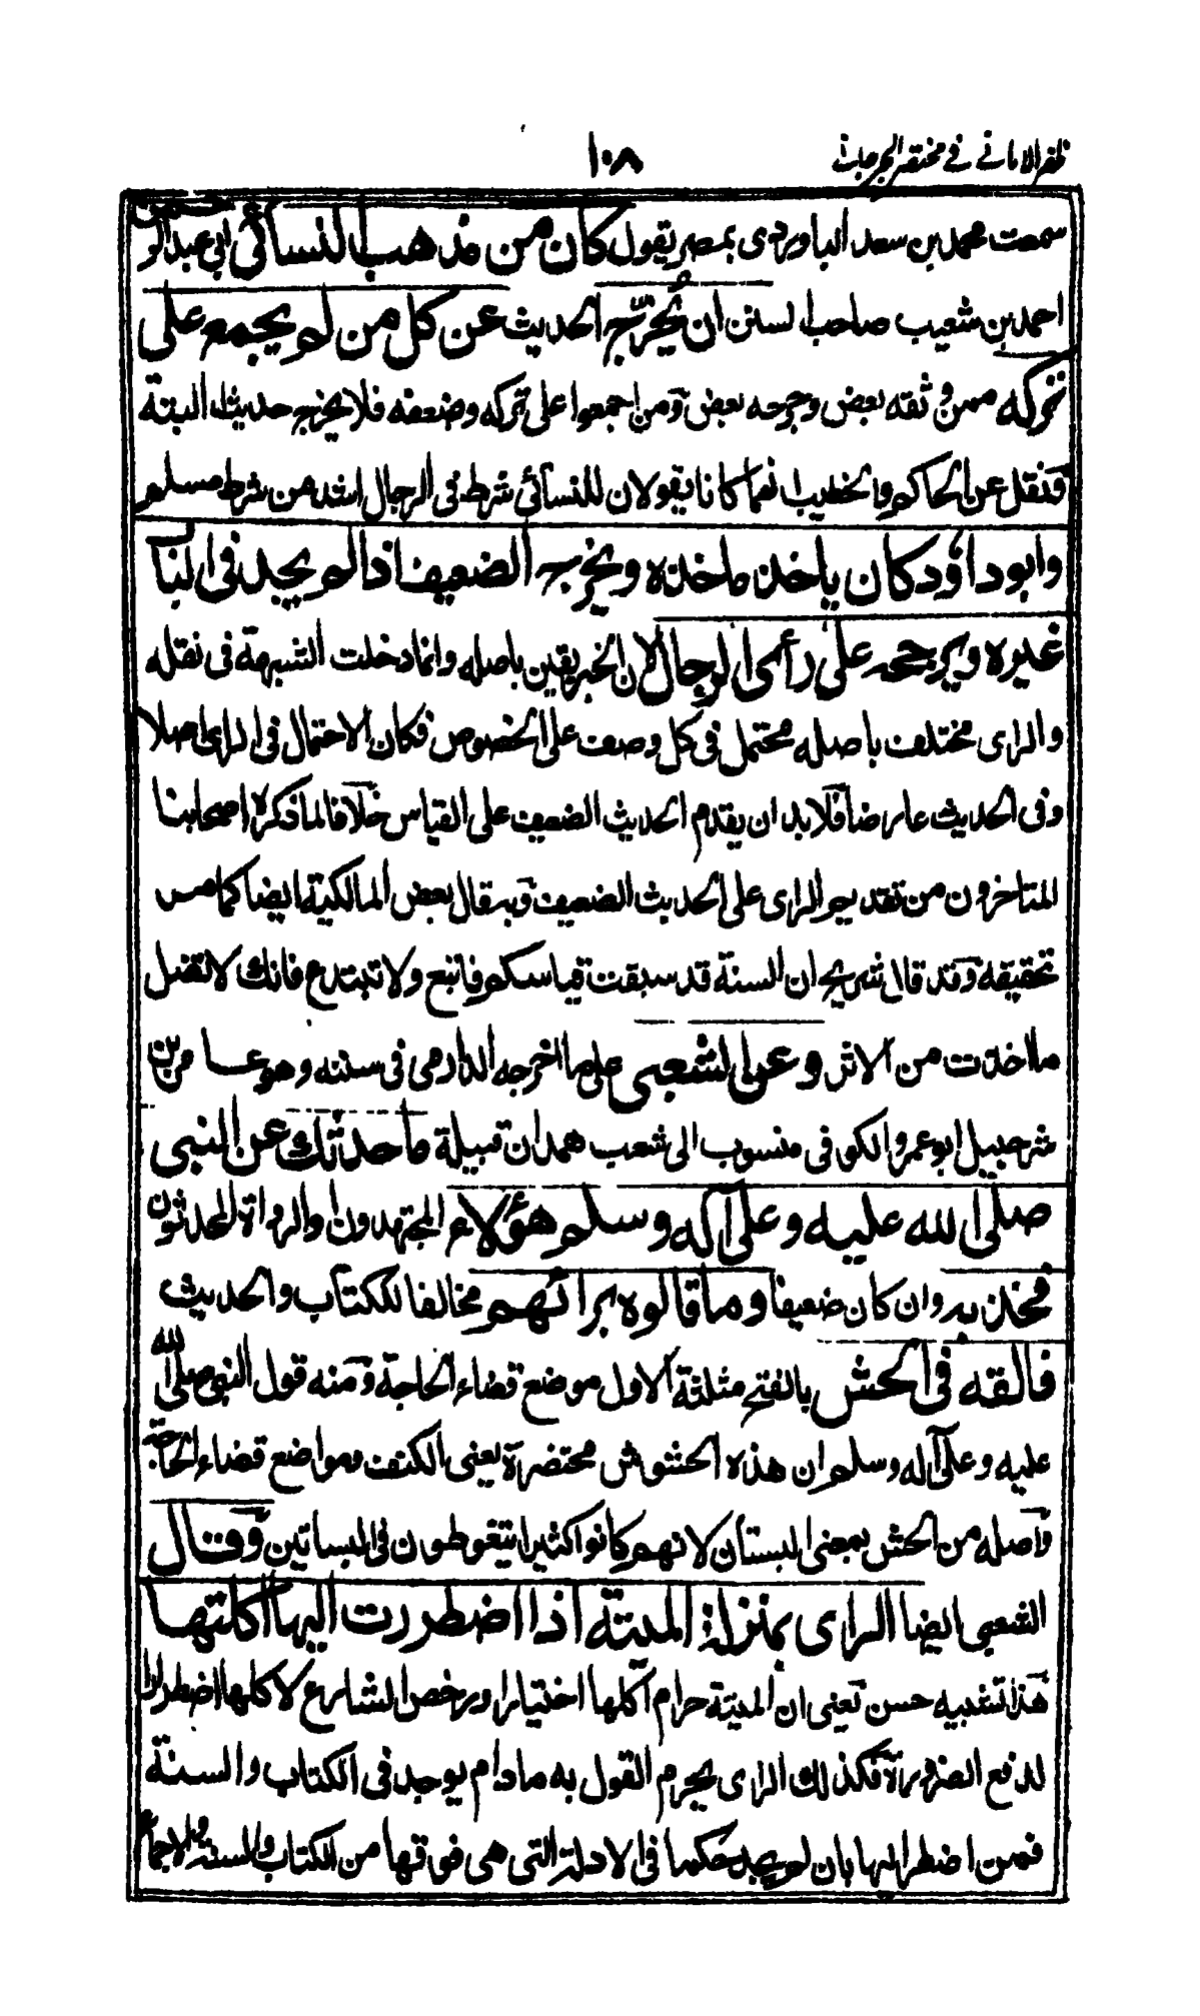 ظفر الامانى فى مختصر الجرجانى
١٠٨
سمعت محمد بن سعد الباوردى بمصر يقول كان من مذهب النسائى ابى عبد الرحمن
احمد بن شعيب صاحب السنن ان يُخرّج الحديث عن كل من لم يجمع على
تركه ممن وثقه بعض وجرحه بعض ومن اجمعوا على تركه وضعفه فلا يخرج حديثه البتة
ونقل عن الحاكم والخطيب انهما كانا يقولان للنسائى شرط فى الرجال اشد من شرط مسلم
وابو داؤد كان ياخذ ماخذه ويخرج الضعيف اذا لم يجد فى الباب
غيره ويرجحه على رأى الرجال لان الخبر يقين باصله وانما دخلت الشبهة فى نقله
والراى مختلف باصله محتمل فى كل وصف على الخصوص فكان الاحتمال فى الراى اصلا
وفى الحديث عارضا فلا بد ان يقدم الحديث الضعيف على القياس خلافا لما ذكره اصحابنا
المتاخرون من تقديم الراى على الحديث الضعيف وبه قال بعض المالكية ايضا كما مر
تحقيقه وقد قال شريح ان السنة قد سبقت قياسكم فاتبع ولا تبتدع فانك لا تضل
ما اخذت من الاثر وعن الشعبى على ما اخرجه الدارمى فى سننه وهو عامر بن
شرحبيل ابو عمرو الكوفى منسوب الى شعب همدان قبيلة ما حدثك عن النبى
صلى الله عليه وعلى آله وسلم هؤلاء المجتهدون والرواة المحدثون
فخذ به وان كان ضعيفا وما قالوه برائهم مخالفا للكتاب والحديث
فالقه فى الحش بالفتح مثلثة الاول موضع قضاء الحاجة ومنه قول النبى صلى الله
عليه وعلى آله وسلم ان هذه الحشوش محتضرة يعنى الكنف ومواضع قضاء الحاجة
واصله من الحش بمعنى البستان لانهم كانوا كثيرا يتغوطون فى البساتين وقال
الشعبى ايضا الراى بمنزلة الميتة اذا اضطررت اليها اكلتها
هذا تشبيه حسن يعنى ان الميتة حرام اكلها اختيارا ورخص الشارع لاكلها اضطرارا
لدفع الضرورة فكذلك الراى يحرم القول به مادام يوجد فى الكتاب والسنة
فمن اضطر اليها بان لم يجد حكما فى الادلة التى هى فوقها من الكتاب والسنة والاجماع